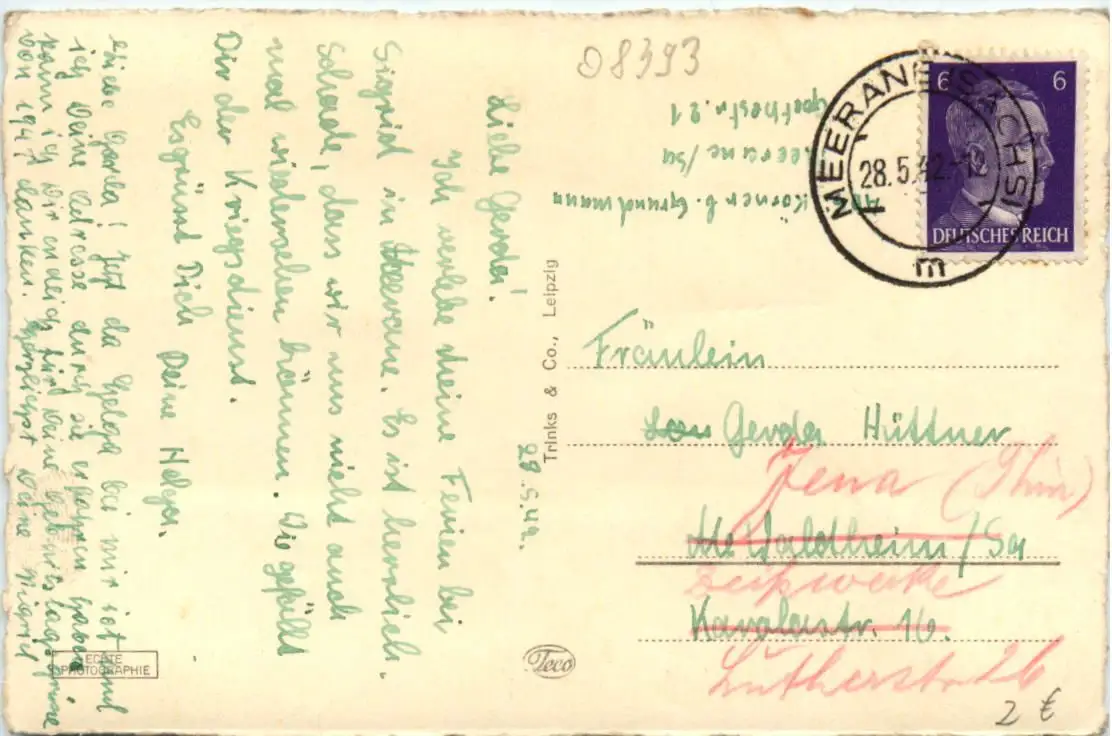 08393
Körner b. Grundmann
Meerane/Sa
Goethestr. 21
MEERANE (SACHS)
28.5.42-12
m
6 6
DEUTSCHES REICH
29.5.42.
Liebe Gerda!
Ich verlebe meine Ferien bei
Sigrid in Meerane. Es ist herrlich.
Schade, dass wir uns nicht auch
mal wiedersehen können. Wie gefällt
Dir der Kriegsdienst.
Es grüsst Dich Deine Helga.
Liebe Gerda! Jetzt da Helga bei mir ist und
ich Deine Adresse durch sie erfahren habe
kann ich Dir endlich für Deine Geburtstagsgrüsse
von 1941 danken. Herzlichst Deine Sigrid
Trinks & Co., Leipzig
Fräulein
Gerda Hüttner
Jena (Thür)
Waldheim/Sa
Zeißwerke
16.
Lutherstr. 26
ECHTE
PHOTOGRAPHIE
Teco
2 €